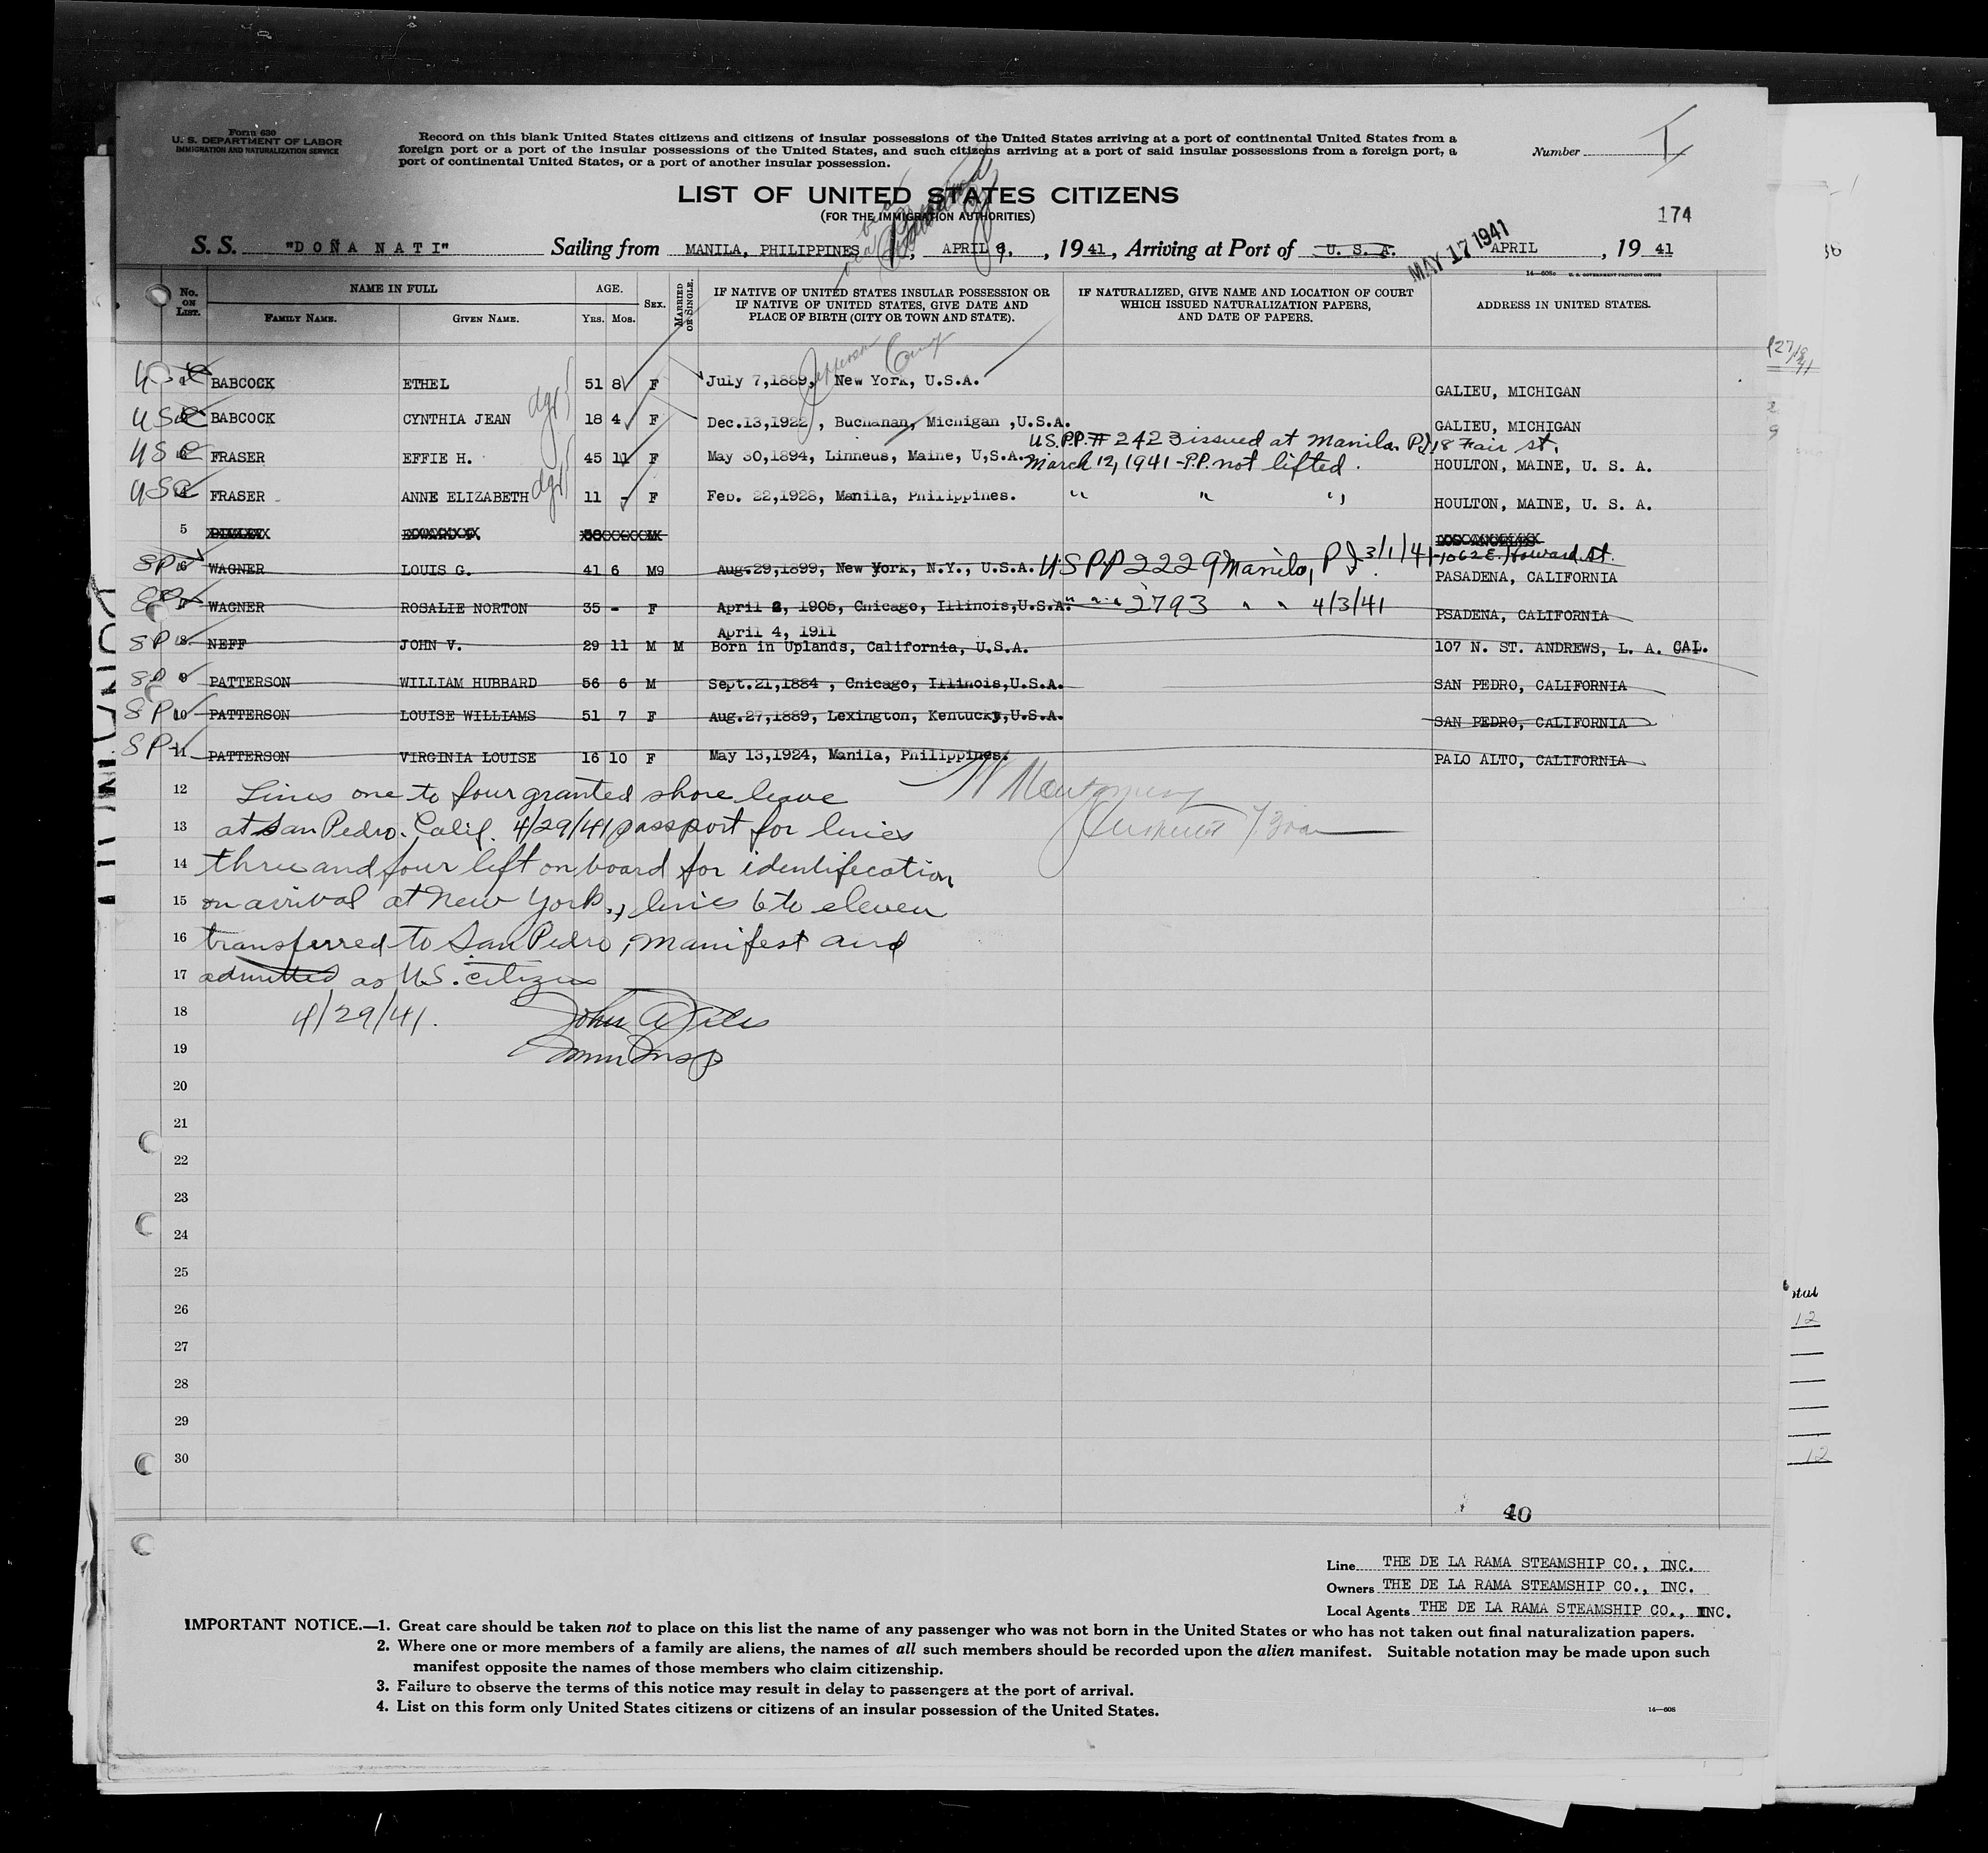 Form 630
U. S. DEPARTMENT OF LABOR
IMMIGRATION AND NATURALIZATION SERVICE
Record on this blank United States citizens and citizens of insular possessions of the United States arriving at a port of continental United States from a
foreign port or a port of the insular possessions of the United States, and such citizens arriving at a port of said insular possessions from a foreign port, a
port of continental United States, or a port of another insular possession.
Number I
LIST OF UNITED STATES CITIZENS
(FOR THE IMMIGRATION AUTHORITIES)
174
S. S. "DOÑA NATI" Sailing from MANILA, PHILIPPINES, APRIL 9, 1941, Arriving at Port of U. S. A. MAY 17 1941 APRIL, 1941
14—608a U. S. GOVERNMENT PRINTING OFFICE
No. ON LIST. NAME IN FULL AGE. SEX. MARRIED OR SINGLE. IF NATIVE OF UNITED STATES INSULAR POSSESSION OR IF NATIVE OF UNITED STATES, GIVE DATE AND PLACE OF BIRTH (CITY OR TOWN AND STATE). IF NATURALIZED, GIVE NAME AND LOCATION OF COURT WHICH ISSUED NATURALIZATION PAPERS, AND DATE OF PAPERS. ADDRESS IN UNITED STATES.
FAMILY NAME. GIVEN NAME. Yrs. Mos.
Jefferson Cony
BABCOCK ETHEL 51 8 F July 7,1889, New York, U.S.A. GALIEU, MICHIGAN
USC BABCOCK CYNTHIA JEAN 18 4 F Dec.13,1922, Buchanan, Michigan ,U.S.A. GALIEU, MICHIGAN
U.S.P.P.# 2423 issued at Manila P.I. 18 Fair st.
USC FRASER EFFIE H. 45 11 F May 30,1894, Linneus, Maine, U,S.A. March 12, 1941 - P.P. not lifted. HOULTON, MAINE, U. S. A.
USC FRASER ANNE ELIZABETH 11 - F Feb. 22,1928, Manila, Philippines. " " " HOULTON, MAINE, U. S. A.
5
1062 E. Howard St.
SP 6 WAGNER LOUIS G. 41 6 M9 Aug.29,1899, New York, N.Y., U.S.A. USPP 2229 Manila, P.I. 3/1/41 PASADENA, CALIFORNIA
WAGNER ROSALIE NORTON 35 - F April 2, 1905, Chicago, Illinois,U.S.A. " " " 2793 " " 4/3/41 PSADENA, CALIFORNIA
April 4, 1911
SP 8 NEFF JOHN V. 29 11 M M Born in Uplands, California, U.S.A. 107 N. ST. ANDREWS, L. A. CAL.
SP 9 PATTERSON WILLIAM HUBBARD 56 6 M Sept.21,1884 , Chicago, Illinois,U.S.A. SAN PEDRO, CALIFORNIA
SP 10 PATTERSON LOUISE WILLIAMS 51 7 F Aug.27,1889, Lexington, Kentucky,U.S.A. SAN PEDRO, CALIFORNIA
SP 11 PATTERSON VIRGINIA LOUISE 16 10 F May 13,1924, Manila, Philippines. PALO ALTO, CALIFORNIA
12 Lines one to four granted shore leave
13 at San Pedro. Calif. 4/29/41 passport for lines
14 three and four left on board for identifecation
15 on arrival at New York., lines 6 to eleven
16 transferred to San Pedro, manifest and
17 admitted as U.S. citizens
18 4/29/41. John A
19 Imm Insp
20
21
22
23
24
25
26
27
28
29
30
40
Line THE DE LA RAMA STEAMSHIP CO., INC.
Owners THE DE LA RAMA STEAMSHIP CO., INC.
Local Agents THE DE LA RAMA STEAMSHIP CO., INC.
IMPORTANT NOTICE.—1. Great care should be taken not to place on this list the name of any passenger who was not born in the United States or who has not taken out final naturalization papers.
2. Where one or more members of a family are aliens, the names of all such members should be recorded upon the alien manifest. Suitable notation may be made upon such
manifest opposite the names of those members who claim citizenship.
3. Failure to observe the terms of this notice may result in delay to passengers at the port of arrival.
4. List on this form only United States citizens or citizens of an insular possession of the United States.
14—608
12
12